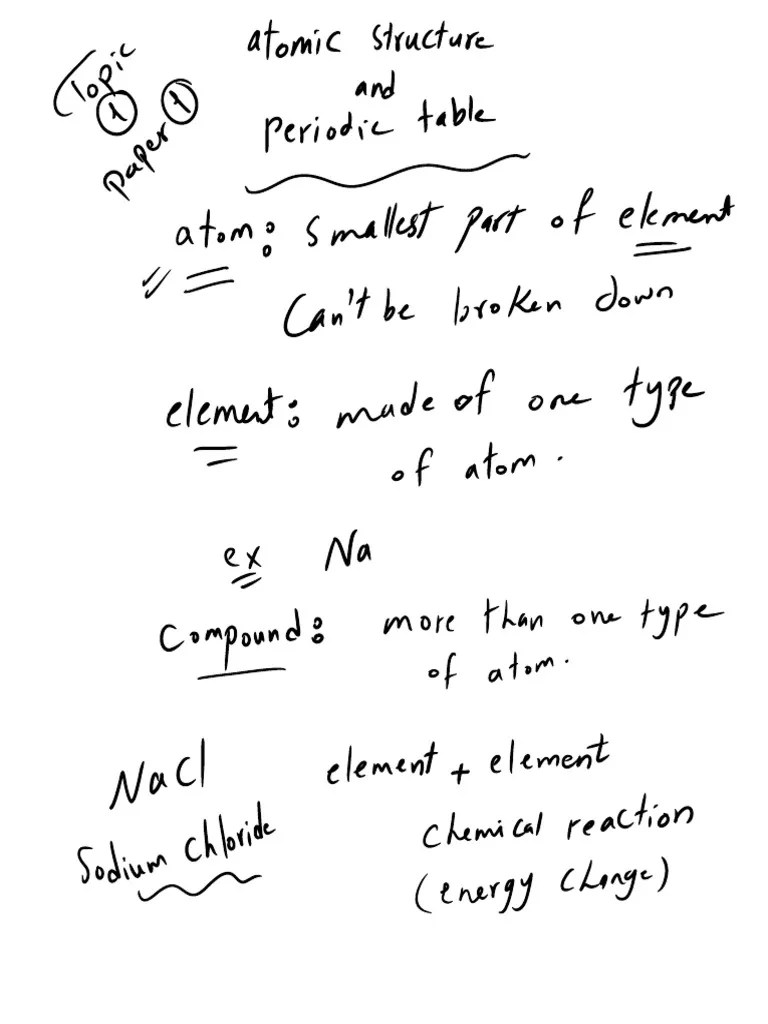 Topic 1
Paper 1
atomic structure
and
Periodic table
atom: smallest part of element
Can't be broken down
element: made of one type
of atom.
ex Na
Compound: more than one type
of atom.
NaCl element + element
Sodium Chloride chemical reaction
(energy change)